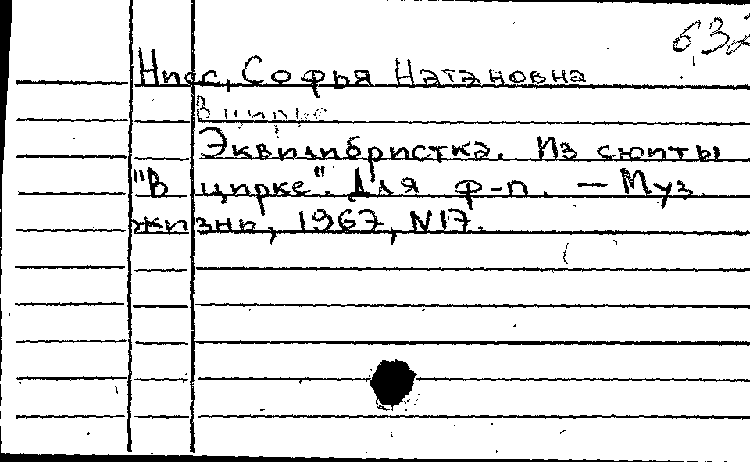 632
Нисс, Софья Натановна
В цирке
Эквилибристка. Из сюиты
"В цирке". Для ф-п. — Муз.
жизнь, 1967, N17.